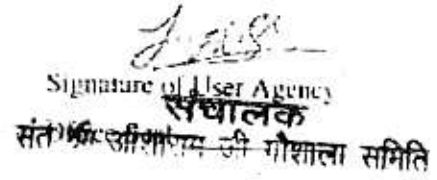 Signature of User Agency
संचालक
संत श्री आशाराम जी गौशाला समिति